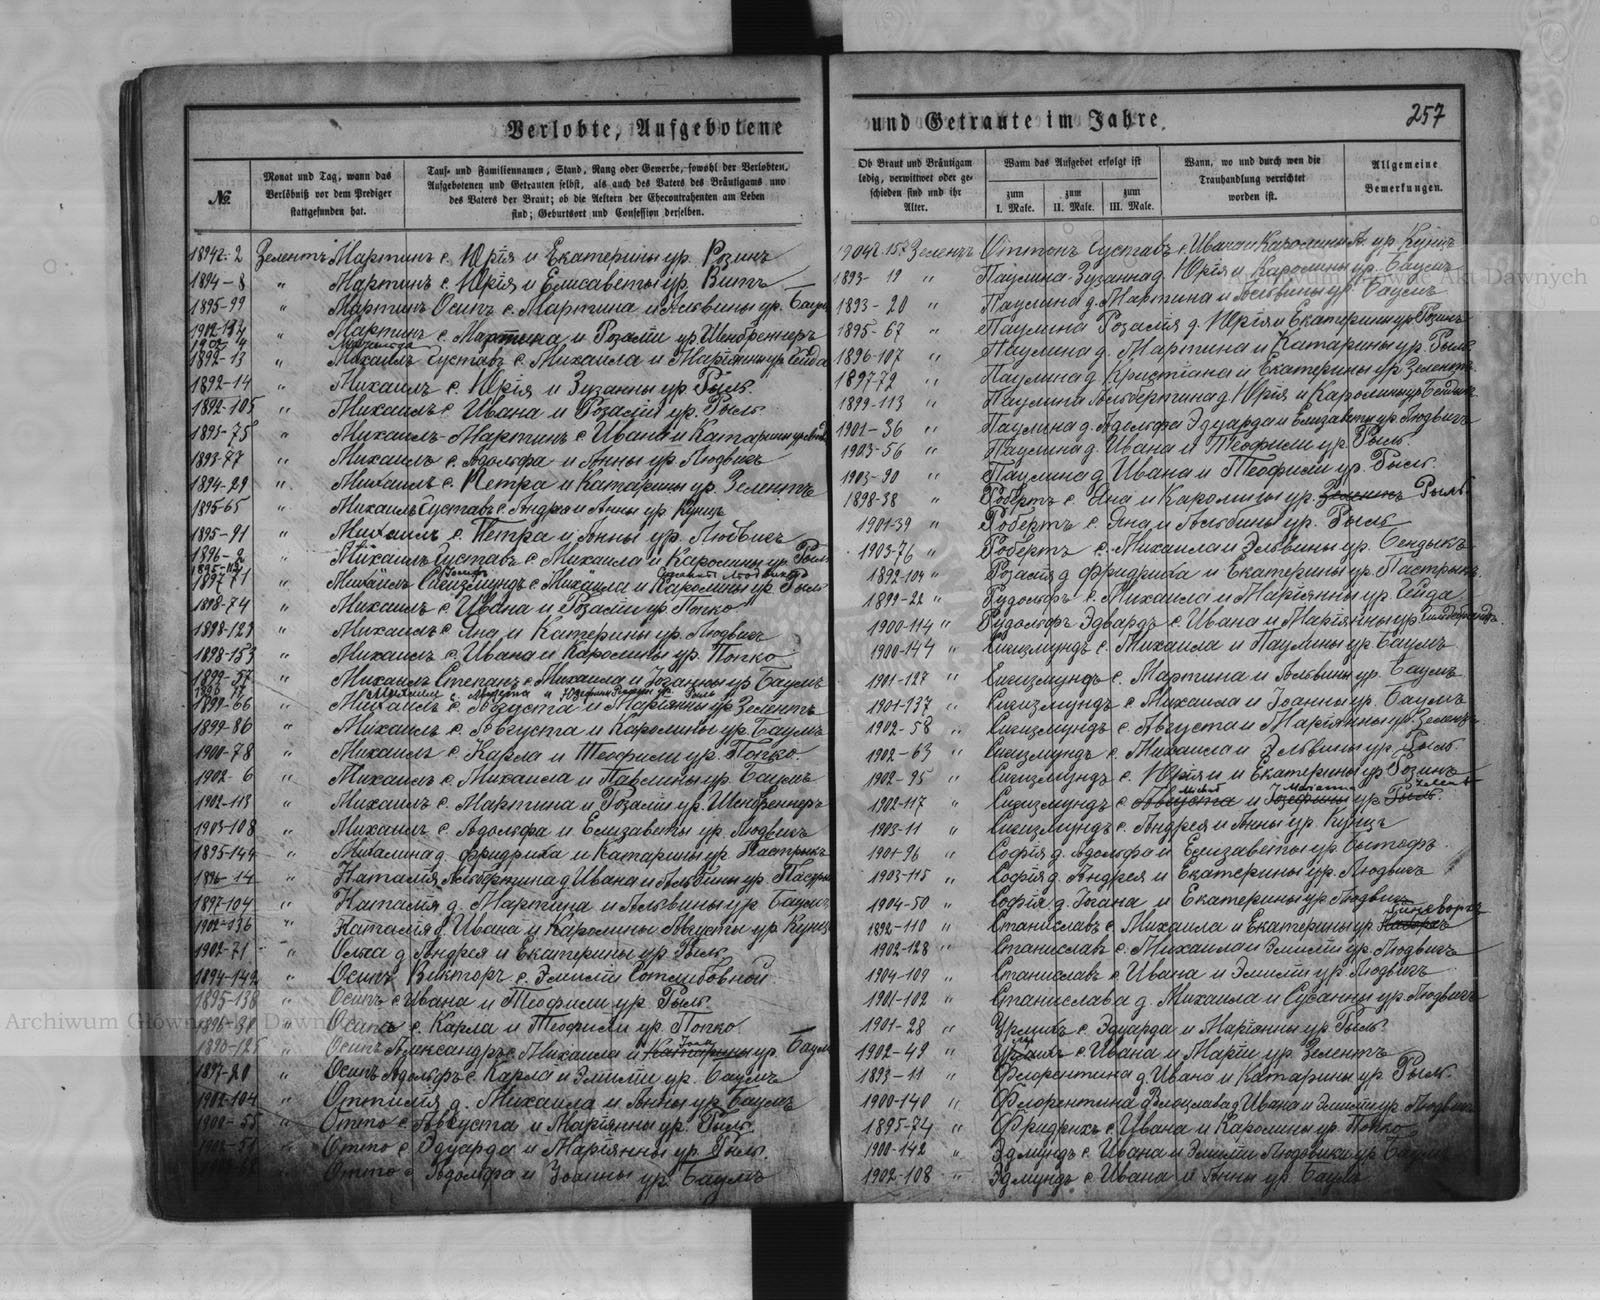 Verlobte, Aufgebotene
№
Monat und Tag, wann das
Verlöbniß vor dem Prediger
stattgefunden hat.
Tauf- und Familiennamen, Stand, Rang oder Gewerbe, sowohl der Verlobten,
Aufgebotenen und Getrauten selbst, als auch des Vaters des Bräutigams und
des Vaters der Braut; ob die Aeltern der Ehecontrahenten am Leben
sind; Geburtsort und Confession derselben.
1894-2 Зелентъ Мартинъ с. Юрія и Екатерины ур. Розинъ
1894-8 " Мартинъ с. Юрія и Елисаветы ур. Витъ
1895-99 " Мартинъ Осипъ с. Мартина и Альвины ур. Баумъ
" Мартинъ с. Мартина и Розаліи ур. Шенбреннеръ
1892-13 Михаилъ Густавъ с. Михаила и Маріянны ур. Гейда
1892-14 " Михаилъ с. Юрія и Зузанны ур. Рыль
1892-105 " Михаилъ с. Ивана и Розаліи ур. Рыль
1893-75 " Михаилъ-Мартинъ с. Ивана и Катарины
1893-77 " Михаилъ с. Адольфа и Анны ур. Людвигъ
1894-29 " Михаилъ с. Петра и Катарины ур. Зелентъ
1895-65 " Михаилъ Густавъ с. Андрея и Анны ур. Кунцъ
1895-91 " Михаилъ с. Петра и Анны ур. Людвигъ
1896-2 " Михаилъ Густавъ с. Михаила и Каролины ур. Рыль
1897-71 " Михаилъ Сигизмундъ с. Михаила и Каролины ур. Рыль
1898-74 " Михаилъ с. Ивана и Розаліи ур. Попко
1898-123 " Михаилъ с. Яна и Катерины ур. Людвигъ
1898-153 " Михаилъ с. Ивана и Каролины ур. Попко
1899-37 " Михаилъ Степанъ с. Михаила и Іоганны ур. Баумъ
1899-66 " Михаилъ с. Августа и Маріянны ур. Зелентъ
1899-86 " Михаилъ с. Августа и Каролины ур. Баумъ
1900-78 " Михаилъ с. Карла и Теофили ур. Попко.
1902-6 " Михаилъ с. Михаила и Павлины ур. Баумъ
1902-113 " Михаилъ с. Мартина и Розаліи ур. Шенбреннеръ
1903-108 " Михаилъ с. Адольфа и Елизаветы ур. Людвигъ
1895-144 " Михалина д. Фридриха и Катарины ур. Пастрыкъ
1896-14 " Наталія Альбертина д. Ивана и Альбины ур.
1897-104 " Наталія д. Мартина и Альвины ур. Баумъ
1902-136 " Наталія д. Ивана и Каролины Августы ур. Кунцъ
1902-71 " Ольга д. Андрея и Екатерины ур. Рыль.
1894-142 " Осипъ Викторъ с. Эмиліи Готлибовной
1895-138 " Осипъ с. Ивана и Теофили ур. Рыль.
" с. Карла и Теофили ур. Попко.
" Осипъ Александръ с. Михаила и Катарины ур. Баумъ
1897-80 " Осипъ Адольфъ с. Карла и Эмиліи ур. Баумъ
1902-104 " Оттилія д. Михаила и Анны ур. Баумъ
1900-55 " Отто с. Августа и Маріянны ур. Рыль.
" Отто с. Эдуарда и Маріянны ур. Рыль.
Отто с. Адольфа и ур. Баумъ
und Getraute im Jahre.
257
Ob Braut und Bräutigam
ledig, verwittwet oder ge-
schieden sind und ihr
Alter.
Wann das Aufgebot erfolgt ist
zum
I. Male.
zum
II. Male.
zum
III. Male.
Wann, wo und durch wen die
Trauhandlung verrichtet
worden ist.
Allgemeine
Bemerkungen.
Зелентъ Оттонъ Густавъ с. Ивана и Каролины А. ур. Кунцъ
1893-19 " Паулина-Зузанна д. Юрія и Каролины ур. Баумъ
1893-20 " Паулина д. Мартина и Альвины ур. Баумъ
1895-67 " Паулина Розалія д. Юрія и Екатерины ур. Розинъ
1896-107 " Паулина д. Мартина и Катарины ур. Рыль
1897-72 " Паулина д. Кристіана и Екатерины ур. Зелентъ
1899-113 " Паулина Альбертина д. Юрія и Каролины ур.
1901-36 " Паулина д. Адольфа Эдуарда и Елизаветы ур. Людвигъ
1903-56 " Паулина д. Ивана и Теофили ур. Рыль.
1903-90 " Паулина д. Ивана и Теофили ур. Рыль.
1898-38 " Робертъ с. Яна и Каролины ур. Зелентъ Рыль
1901-39 " Робертъ с. Яна и Альбины ур. Рыль
1903-76 " Робертъ с. Михаила и Эльвины ур. Бендыкъ
1892-104 " Розалія д. Фридриха и Екатерины ур. Пастрыкъ
1899-22 " Рудольфъ с. Михаила и Маріянны ур. Гейда
1900-114 " Рудольфъ Эдвардъ с. Ивана и Маріянны ур.
1900-144 " Сигизмундъ с. Михаила и Паулины ур. Баумъ
1901-127 " Сигизмундъ с. Мартина и Альвины ур. Баумъ
1901-137 " Сигизмундъ с. Михаила и Іоанны ур. Баумъ
1902-58 " Сигизмундъ с. Августа и Маріянны ур. Зелентъ
1902-63 " Сигизмундъ с. Михаила и Эльвины ур. Рыль.
1902-95 " Сигизмундъ с. Юрія и Екатерины ур. Розинъ
1902-117 " Сигизмундъ с. Августа и Іозефины ур. Рыль.
1903-11 " Сигизмундъ с. Андрея и Анны ур. Кунцъ
1901-96 " Софія д. Адольфа и Елизаветы ур.
1903-115 " Софія д. Андрея и Екатерины ур. Людвигъ
1904-50 " Софія д. Іогана и Екатерины ур. Людвигъ
1892-110 " Станиславъ с. Михаила и Екатерины ур.
1902-128 " Станиславъ с. Михаила и Эмиліи ур. Людвигъ
1904-109 " Станиславъ с. Ивана и Эмиліи ур. Людвигъ
1901-102 " Станислава д. Михаила и Сусанны ур. Людвигъ
1901-28 " с. Эдуарда и Маріянны ур. Рыль.
1902-49 " с. Ивана и Маріи ур. Зелентъ
1893-11 " Флорентина д. Ивана и Катарины ур. Рыль.
1900-140 " Флорентина д. Ивана и Эмиліи ур. Людвигъ
1895-74 " Фридрихъ с. Ивана и Каролины ур. Попко
1900-142 " Эдмундъ с. Ивана и Эмиліи Людовики ур. Баумъ
1902-108 " Эдмундъ с. Ивана и Анны ур. Баумъ
Archiwum Główne Akt Dawnych
Archiwum Główne Akt Dawnych